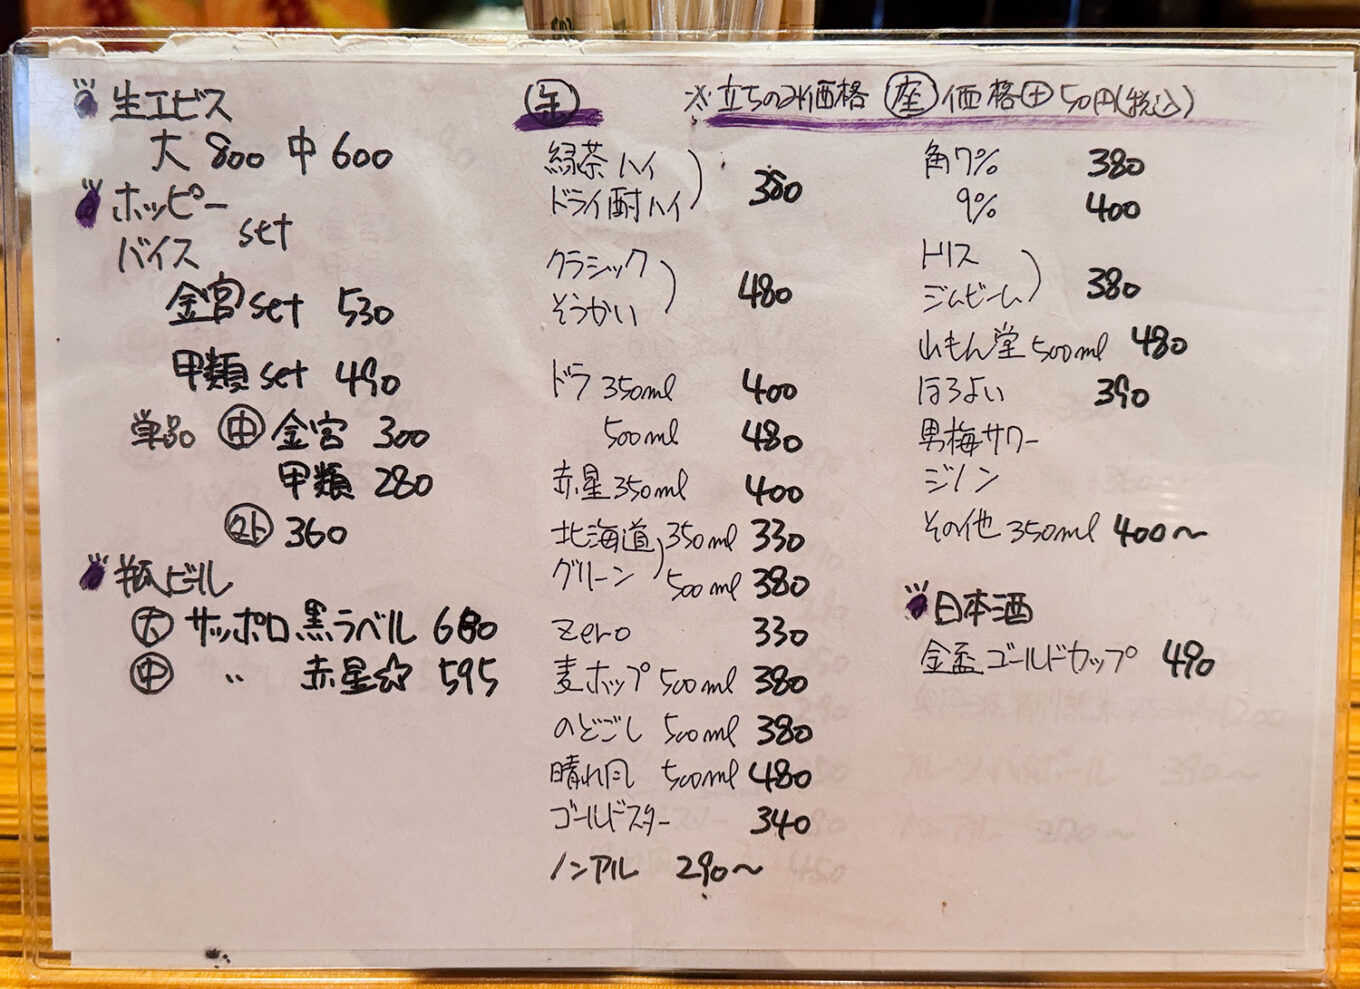 生エビス
大 800 中 600
ホッピー
バイス set
金宮 set 530
甲類 set 490
単品 中 金宮 300
甲類 280
外 360
瓶ビール
大 サッポロ黒ラベル 680
中 〃 赤星☆ 595
缶
緑茶ハイ
ドライ酎ハイ 380
クラシック
そうかい 480
ドラ 350ml 400
500ml 480
赤星 350ml 400
北海道 350ml 330
グリーン 500ml 380
zero 330
麦ホップ 500ml 380
のどごし 500ml 380
晴れ風 500ml 480
ゴールドスター 340
ノンアル 290〜
※立ちのみ価格 座 価格 ㊉ 50円(税込)
角7% 380
9% 400
トリス
ジムビーム 380
山もん堂 500ml 480
ほろよい 390
男梅サワー
ジノン
その他 350ml 400〜
日本酒
金盃ゴールドカップ 490